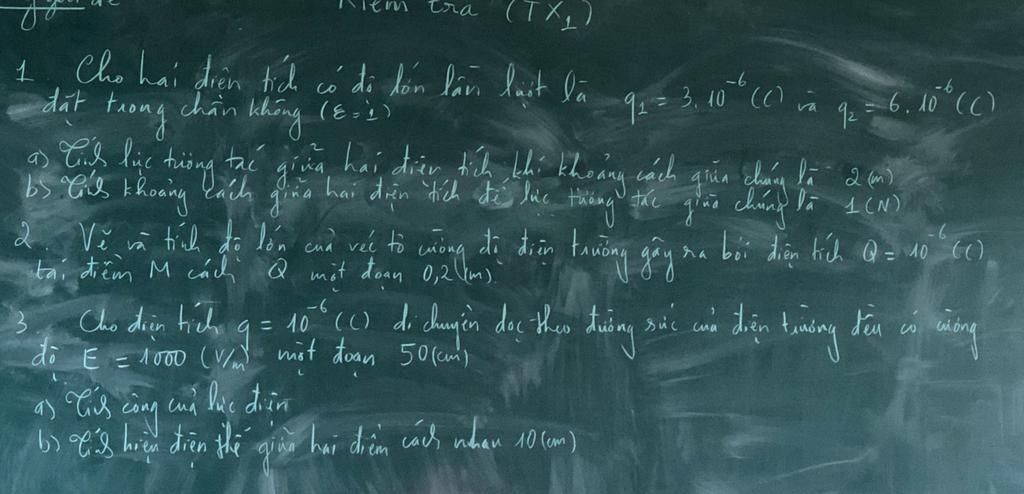 Kiểm tra (TX1)
1. Cho hai điện tích có độ lớn lần lượt là q1 = 3.10^-6 (C) và q2 = 6.10^-6 (C)
đặt trong chân không (ε = 1)
a) Tính lực tương tác giữa hai điện tích khi khoảng cách giữa chúng là 2(m)
b) Tính khoảng cách giữa hai điện tích để lực tương tác giữa chúng là 1(N)
2. Vẽ và tính độ lớn của véc tơ cường độ điện trường gây ra bởi điện tích Q = 10^-6 (C)
tại điểm M cách Q một đoạn 0,2(m)
3. Cho điện tích q = 10^-6 (C) di chuyển dọc theo đường sức của điện trường đều có cường
độ E = 1000 (V/m) một đoạn 50(cm)
a) Tính công của lực điện
b) Tính hiệu điện thế giữa hai điểm cách nhau 10(cm)